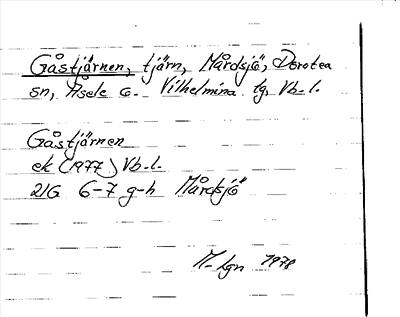 Gåstjärnen, tjärn, Mårdsjö, Dorotea
sn, Åsele o. Vilhelmina tg, Vb-l.
Gåstjärnen
ek (1977) Vb-l.
21G 6-7 g-h Mårdsjö
M-lgn 1978